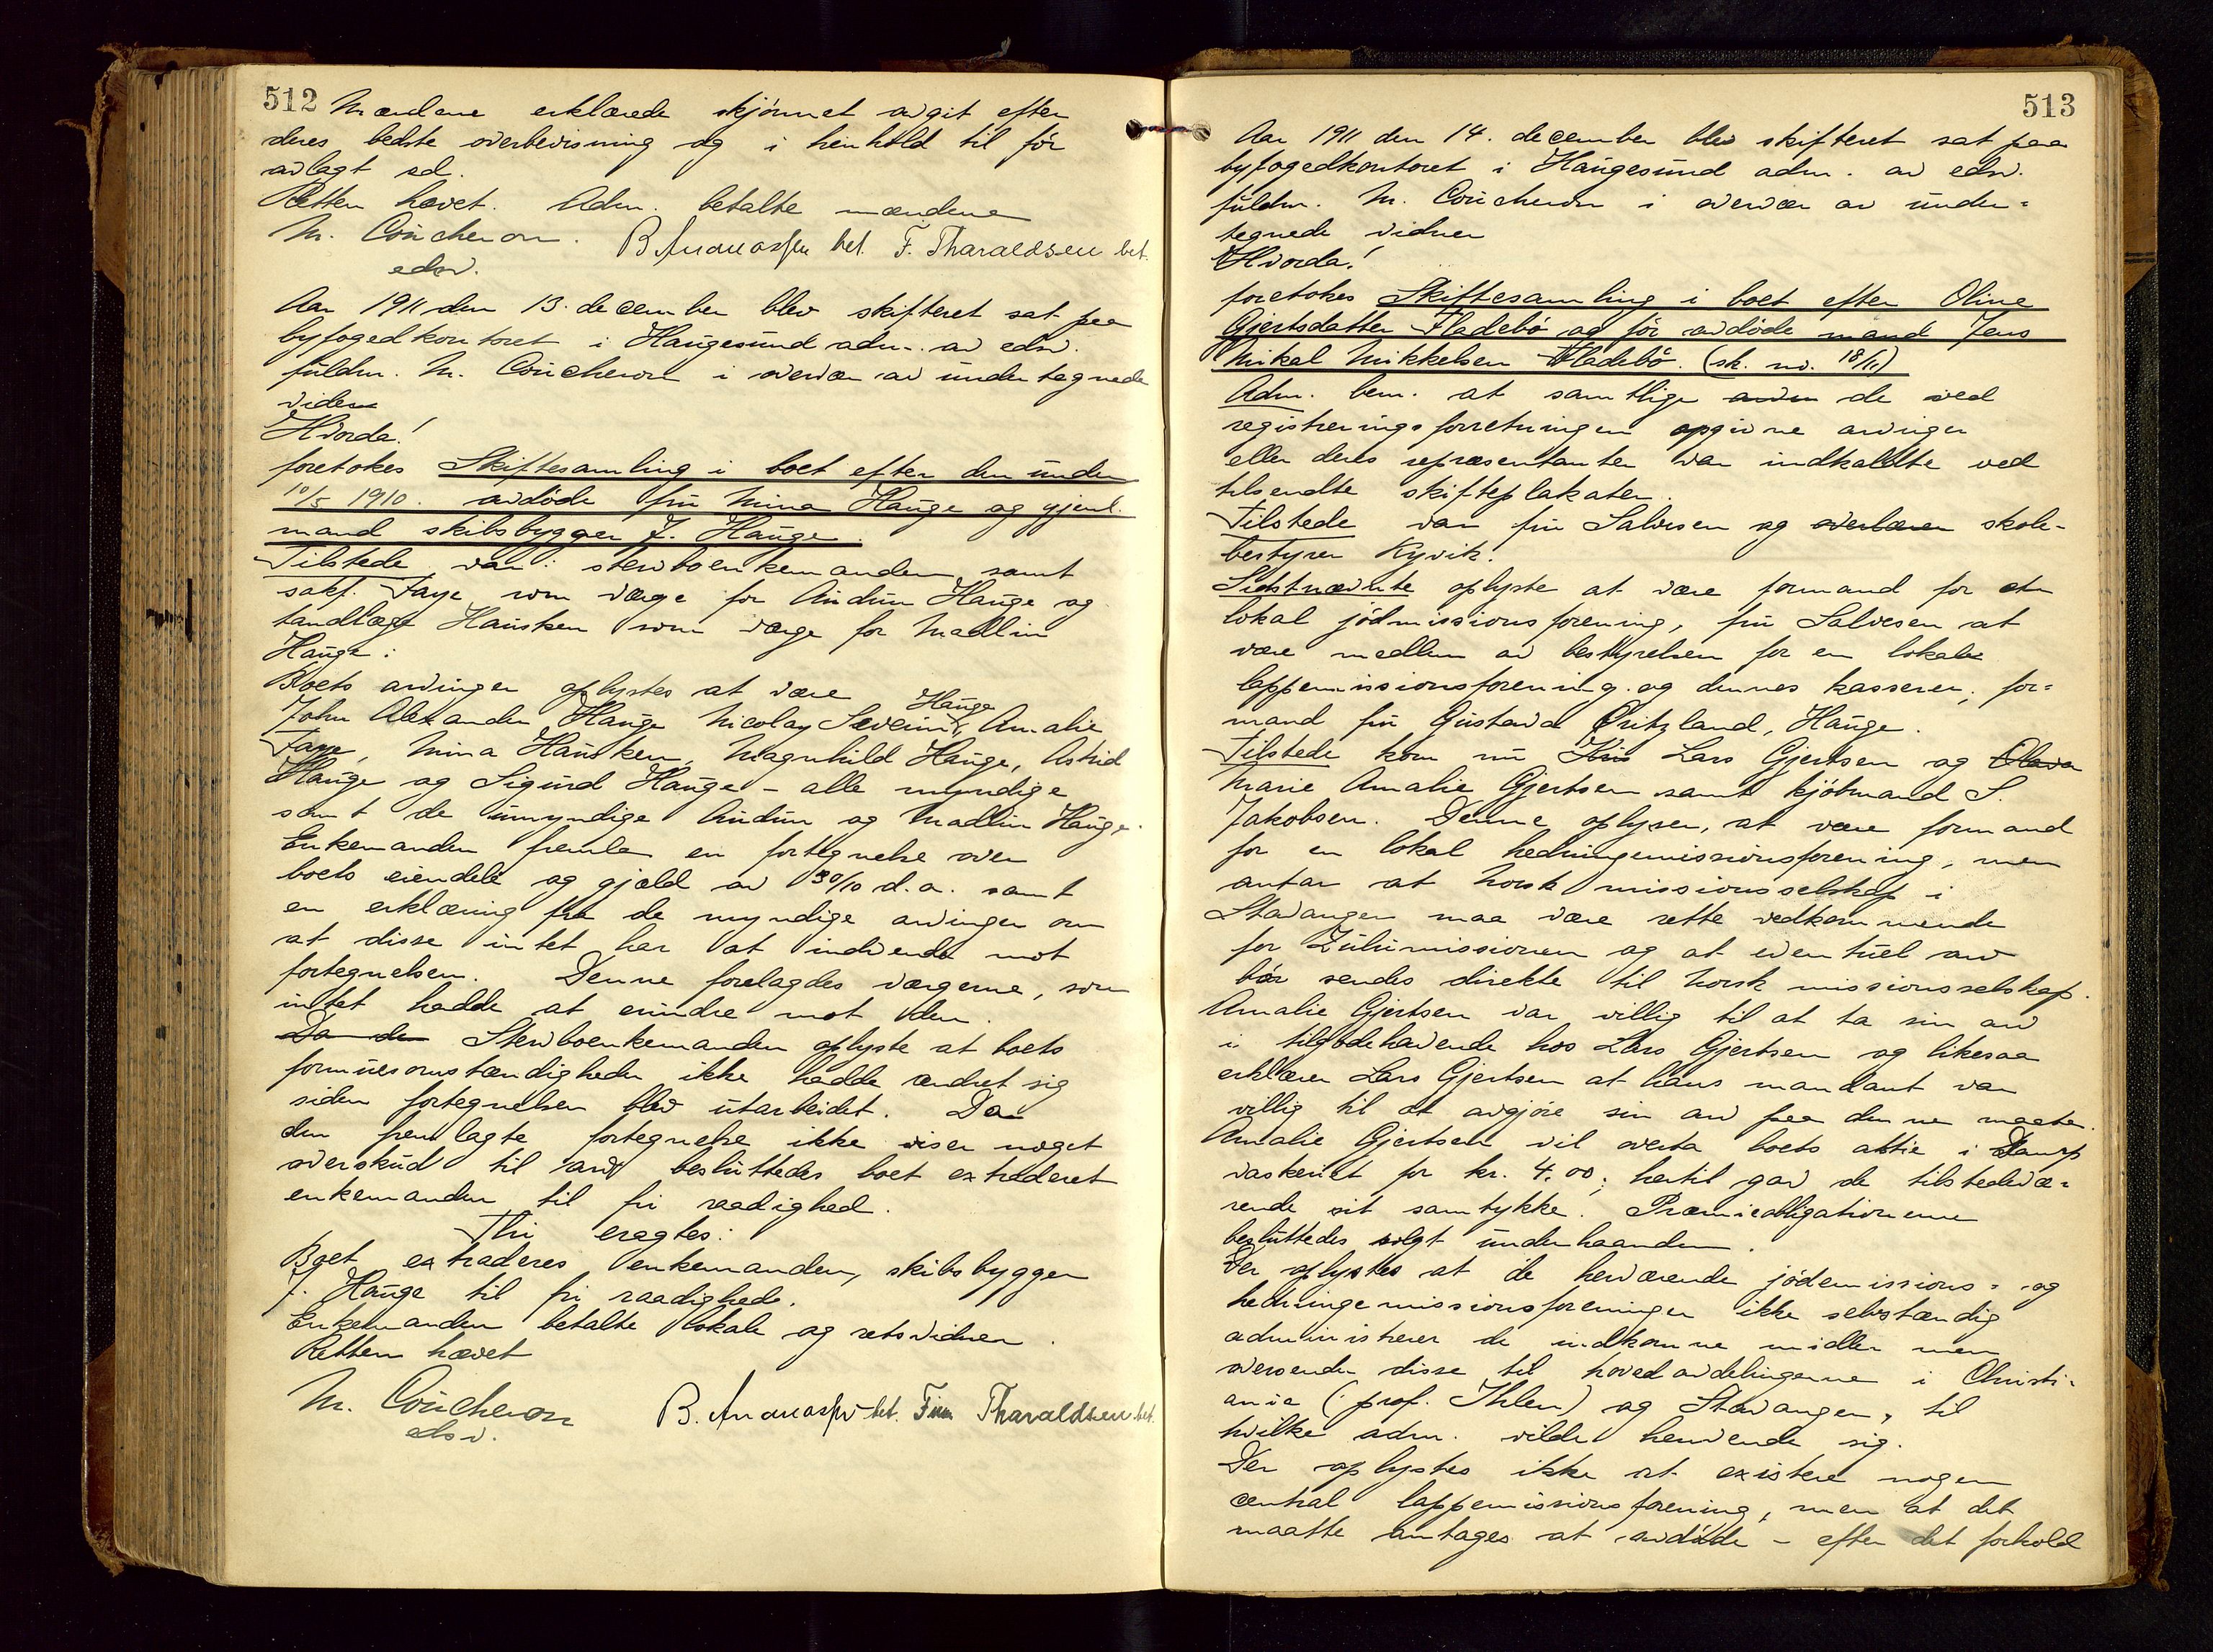 512
Mændene erklærede skjønnet avgit efter
deres bedste overbevisning og i henhold til før
avlagt ed.
Retten hævet. Adm. betalte mændene
M. Coucheron. B. Ananassen bet. F. Tharaldsen bet.
edsv.
Aar 1911 den 13. december blev skifteret sat paa
byfogedkontoret i Haugesund adm. av edsv.
fuldm. M. Coucheron i overvær av undertegnede
vidner
Hvorda!
foretokes Skiftesamling i boet efter den under
10/5 1910. avdøde fru Mina Hauge og gjenl.
mand skibsbygger J. Hauge.
Tilstede var: stervboenkemanden samt
sakf. Faye som værge for Audun Hauge og
tandlæge Hausken som værge for Madlin
Hauge:
Boets arvinger oplystes at være
John Alexander Hauge Nicolay Severin Hauge, Amalie
Faye, Mina Hausken, Magnhild Hauge, Astrid
Hauge og Sigurd Hauge - alle myndige
samt de umyndige Audun og Madlin Hauge.
Enkemanden fremla en fortegnelse over
boets eiendele og gjæld av 30/10 d.a. samt
en erklæring fra de myndige arvinger om
at disse intet har at indvende mot
fortegnelsen. Denne forelagdes værgerne, som
intet hadde at erindre mot den.
Da den Stervboenkemanden oplyste at boets
formuesomstændigheder ikke hadde ændret sig
siden fortegnelsen blev utarbeidet. Da
den fremlagte fortegnelse ikke viser noget
overskud til arv besluttedes boet extraderet
enkemanden til fri raadighed.
Thi eragtes:
Boet extraderes enkemanden, skibsbygger
J. Hauge til fri raadighed.
Enkemanden betalte lokale og retsvidner.
Retten hævet
M. Coucheron B. Ananassen bet. Finn Tharaldsen bet.
edsv.
513
Aar 1911 den 14. december blev skifteret sat paa
byfogedkontoret i Haugesund adm. av edsv.
fuldm. M. Coucheron i overvær av under-
tegnede vidner
Hvorda!
foretokes Skiftesamling i boet efter Oline
Gjertsdatter Fladebø og før avdøde mand Jens
Mikal Mikkelsen Fladebø. (sk. nr. 18/11)
Adm. bem. at samtlige av de ved
registreringsforretningen opgivne arvinger
eller deres repræsentanter var indkaldte ved
tilsendte skifteplakater.
Tilstede var fru Salvesen og overlærer skole-
bestyrer Kyvik.
Sidstnævnte oplyste at være formand for den
lokal jødmissionsforening, fru Salvesen at
være medlem av bestyrelsen for en lokale
lappemissionsforening og dennes kasserer, for-
mand fru Gustava Qvitzland, Hauge.
Tilstede kom nu Lars Gjertsen og Olava
Marie Amalie Gjertsen samt kjøbmand S.
Jakobsen. Denne oplyser, at være formand
for en lokal hedningemissionsforening, men
antar at norsk missionsselskap i
Stavanger maa være rette vedkommende
for Zulumissionen og at eventuel arv
bør sendes direkte til Norsk missionsselskap.
Amalie Gjertsen var villig til at ta sin arv
i tilgodehavende hos Lars Gjertsen og likesaa
erklærer Lars Gjertsen at hans mandant var
villig til at avgjøre sin arv paa denne maate.
Amalie Gjertsen vil overta boets aktie i Damp
vaskeriet for kr. 4.00; hertil gav de tilstedevæ-
rende sit samtykke. Præmieobligationerne
besluttedes solgt underhaanden.
Der oplystes at de herværende jødemissions- og
hedningemissionsforeninger ikke selvstændig
administrerer de indkomne midler men
oversender disse til hovedavdelingerne i Christi-
ania (: prof. Ihlen) og Stavanger, til
hvilke adm. vilde henvende sig.
Der oplystes ikke at existere nogen
central lappemissionsforening, men at det
maatte antages at avdøde - efter det forhold